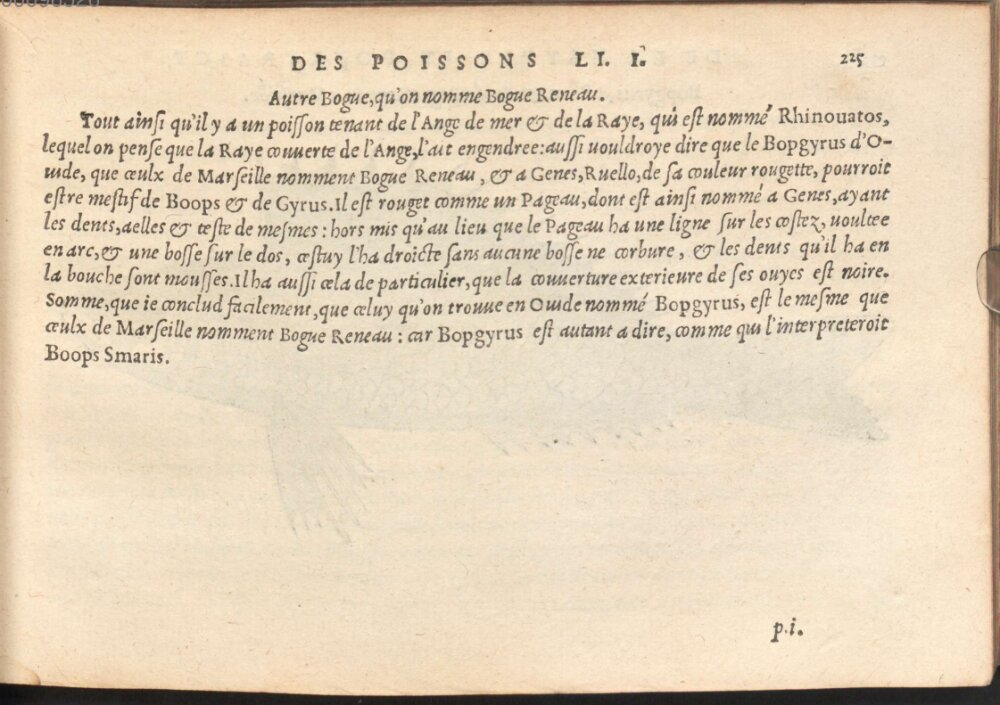 DES POISSONS LI. I. 225
Autre Bogue, qu'on nomme Bogue Reneau.
Tout ainsi qu'il y a un poisson tenant de l'Ange de mer & de la Raye, qui est nommé Rhinouatos,
lequel on pense que la Raye couuerte de l'Ange, l'ait engendree: aussi uouldroye dire que le Bopgyrus d'O-
uide, que ceulx de Marseille nomment Bogue Reneau, & a Genes, Ruello, de sa couleur rougette, pourroit
estre mestif de Boops & de Gyrus. Il est rouget comme un Pageau, dont est ainsi nommé a Genes, ayant
les dents, aelles & teste de mesmes: hors mis qu'au lieu que le Pageau ha une ligne sur les costez, uoultee
en arc, & une bosse sur le dos, cestuy l'ha droicte sans aucune bosse ne corbure, & les dents qu'il ha en
la bouche sont mousses. Il ha aussi cela de particulier, que la couuerture exterieure de ses ouyes est noire.
Somme, que ie conclud facilement, que celuy qu'on trouue en Ouide nommé Bopgyrus, est le mesme que
ceulx de Marseille nomment Bogue Reneau: car Bopgyrus est autant a dire, comme qui l'interpreteroit
Boops Smaris.
p.i.